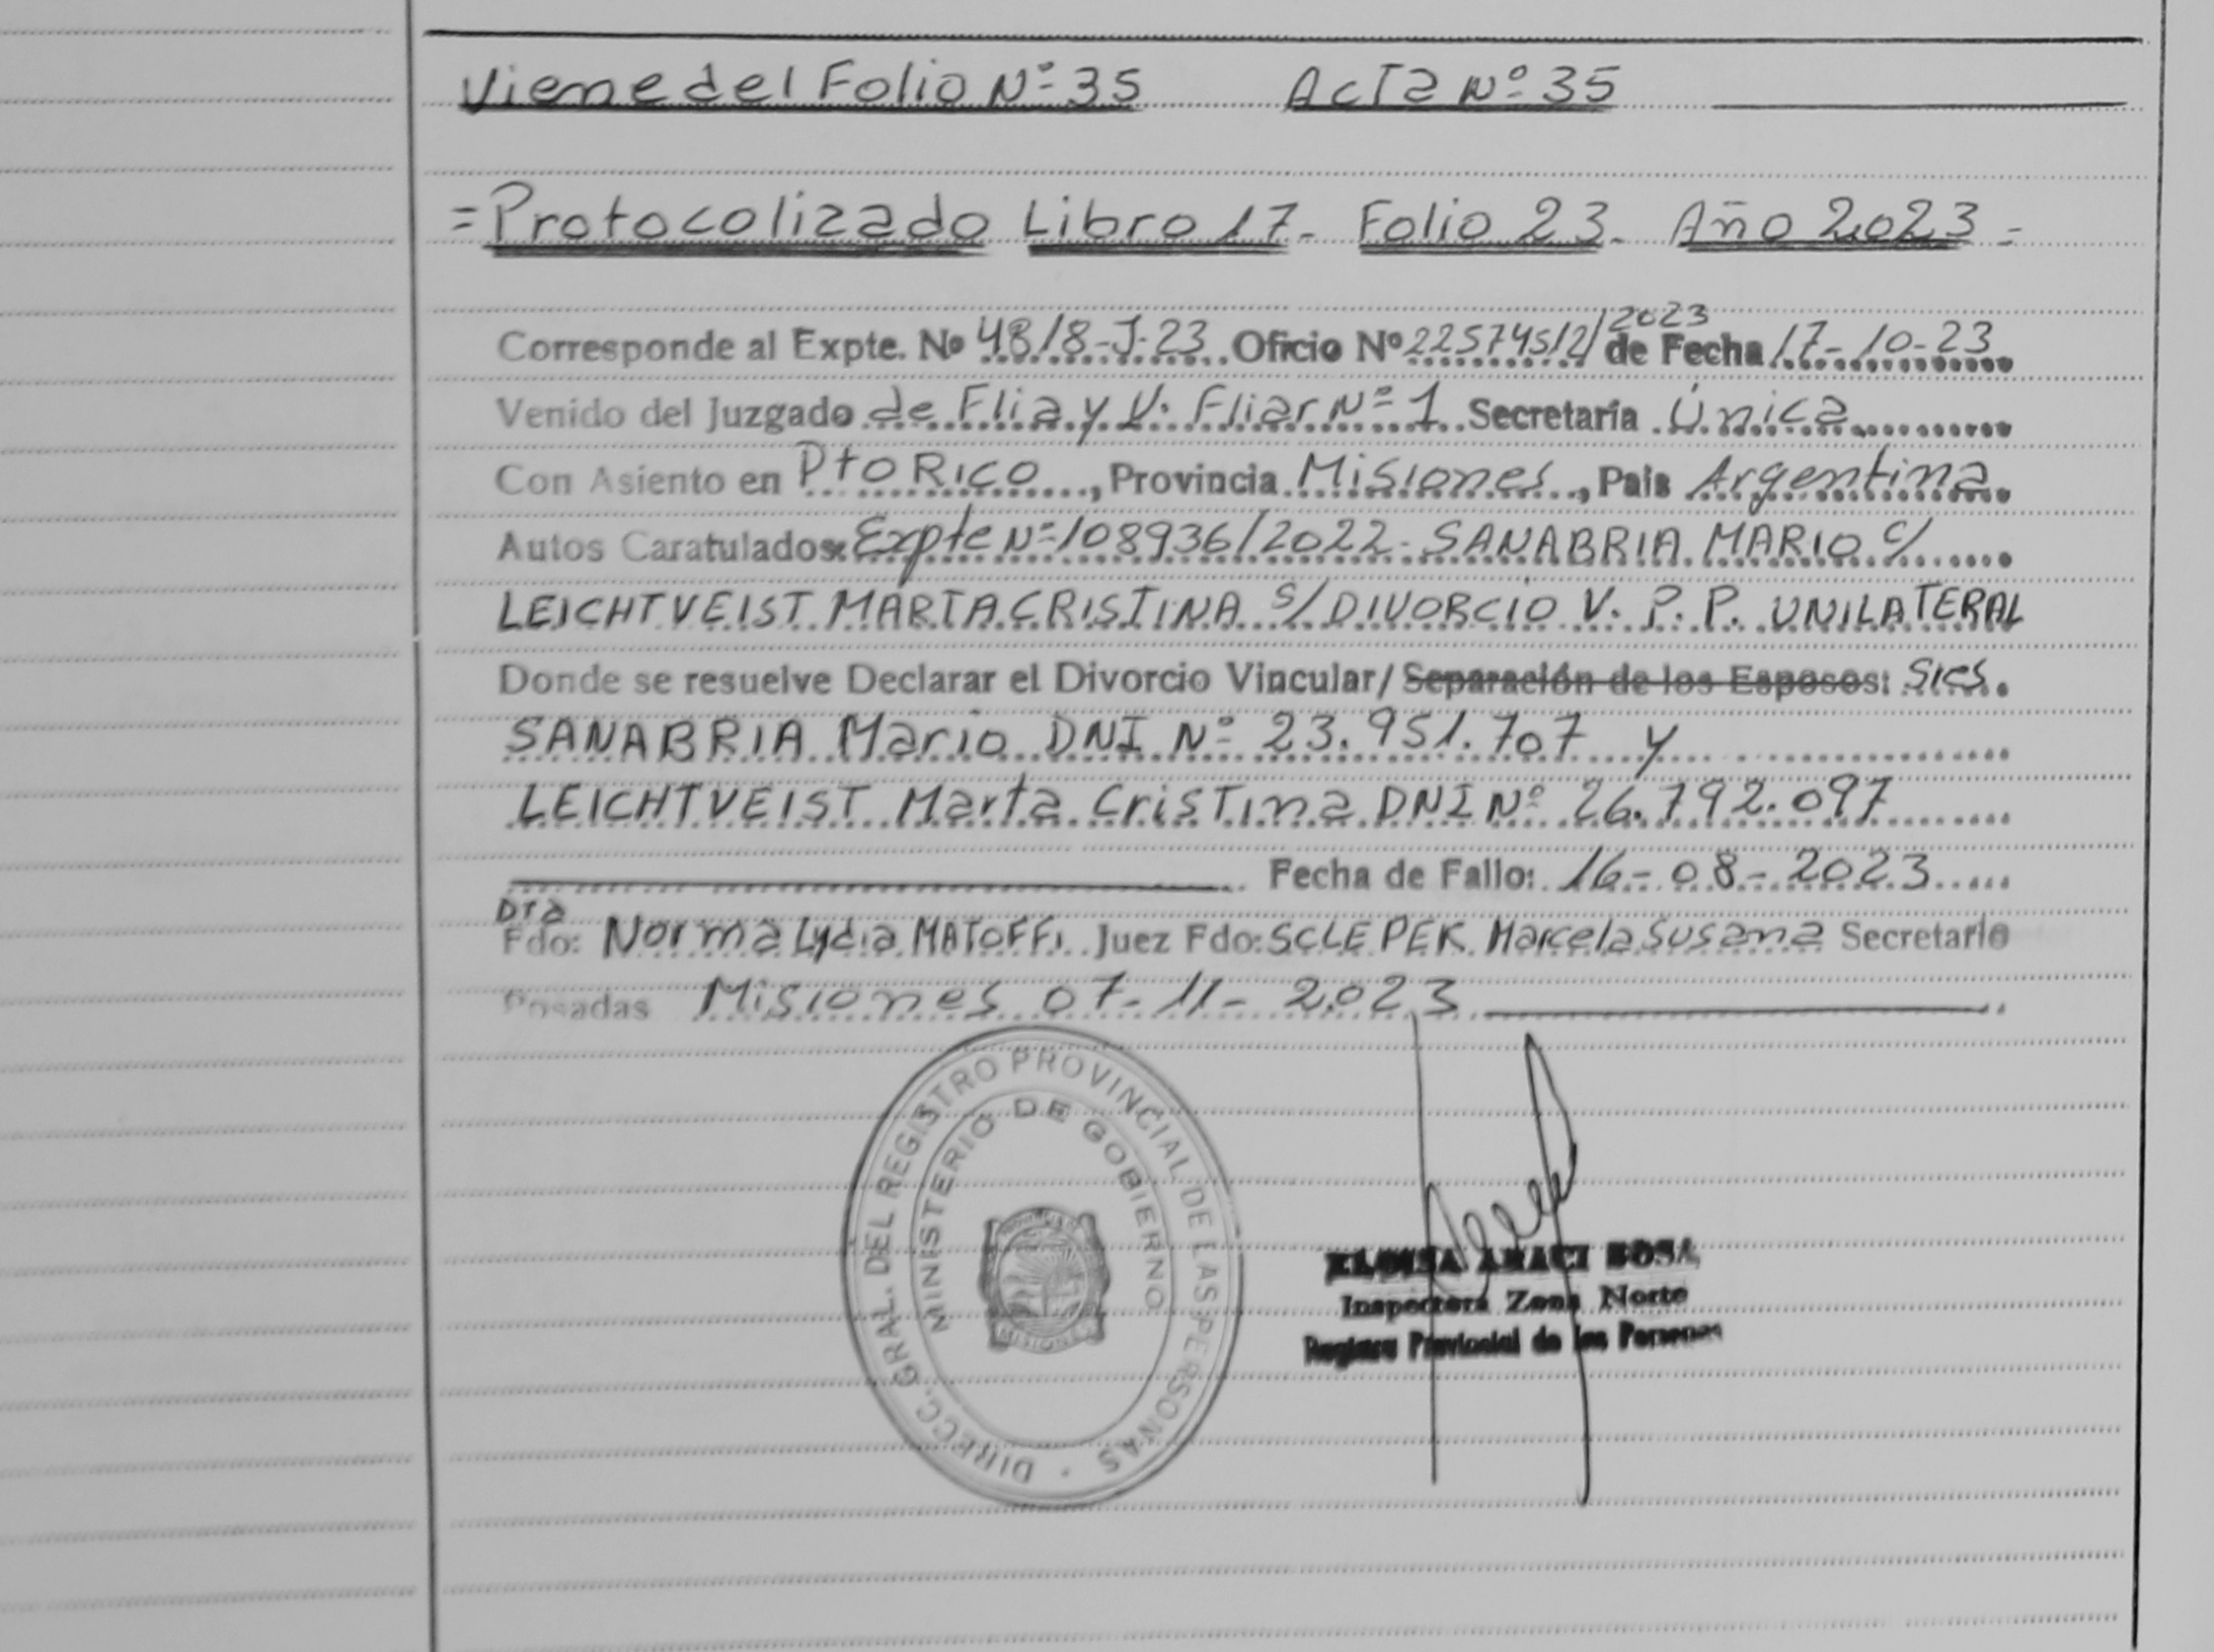 Viene del Folio Nº 35 Acta Nº 35
=Protocolizado Libro 17- Folio 23. Año 2023 =
Corresponde al Expte. Nº 4818-J-23 Oficio Nº 2257452/2023 de Fecha 17-10-23
Venido del Juzgado de Flia y V. Fliar Nº 1 Secretaría Única
Con Asiento en Pto Rico, Provincia Misiones, Pais Argentina
Autos Caratulados: Expte Nº 108936/2022- SANABRIA MARIO c/
LEICHTVEIST MARTA CRISTINA S/ DIVORCIO V. P. P. UNILATERAL
Donde se resuelve Declarar el Divorcio Vincular/ Separación de los Esposos: Sres.
SANABRIA Mario DNI Nº 23.951.707 y
LEICHTVEIST Marta Cristina DNI Nº 26.792.097
Fecha de Fallo: 16-08-2023
Dra
Fdo: Norma Lydia MATOFFI Juez Fdo: SCLEPEK Marcela Susana Secretario
Posadas Misiones 07-11-2023
DIRECC. GRAL. DEL REGISTRO PROVINCIAL DE LAS PERSONAS
MINISTERIO DE GOBIERNO
MISIONES
ELOISA ARACI SOSA
Inspectora Zona Norte
Registro Provincial de las Personas